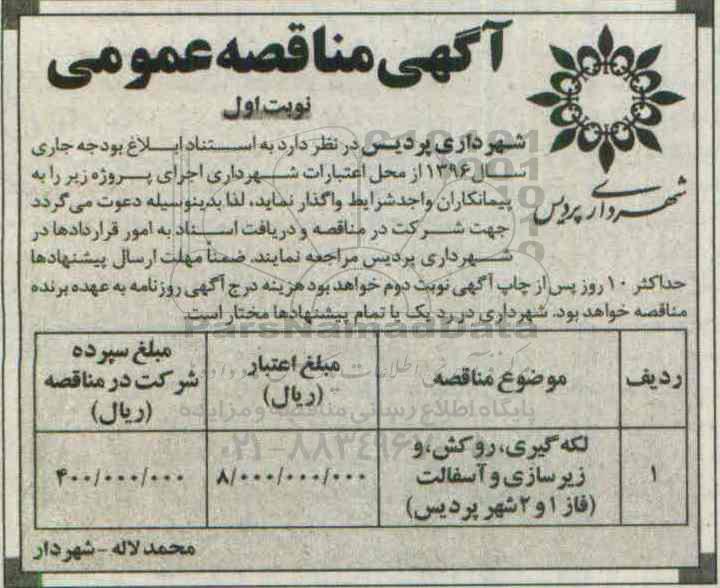 آگهی مناقصه عمومی
نوبت اول
شهرداری پردیس
شهرداری پردیس در نظر دارد به استناد ابلاغ بودجه جاری
سال ۱۳۹۶ از محل اعتبارات شهرداری اجرای پروژه زیر را به
پیمانکاران واجد شرایط واگذار نماید، لذا بدینوسیله دعوت می گردد
جهت شرکت در مناقصه و دریافت اسناد به امور قراردادها در
شهرداری پردیس مراجعه نمایند. ضمناً مهلت ارسال پیشنهادها
حداکثر ۱۰ روز پس از چاپ آگهی نوبت دوم خواهد بود هزینه درج آگهی روزنامه به عهده برنده
مناقصه خواهد بود. شهرداری در رد یک یا تمام پیشنهادها مختار است.
ParsNamadData
پایگاه اطلاع رسانی مناقصه و مزایده
ردیف
موضوع مناقصه
مبلغ اعتبار
(ریال)
مبلغ سپرده
شرکت در مناقصه
(ریال)
۱
لکه گیری، روکش، و
زیرسازی و آسفالت
(فاز ۱ و ۲ شهر پردیس)
۸/۰۰۰/۰۰۰/۰۰۰
۴۰۰/۰۰۰/۰۰۰
محمد لاله - شهردار